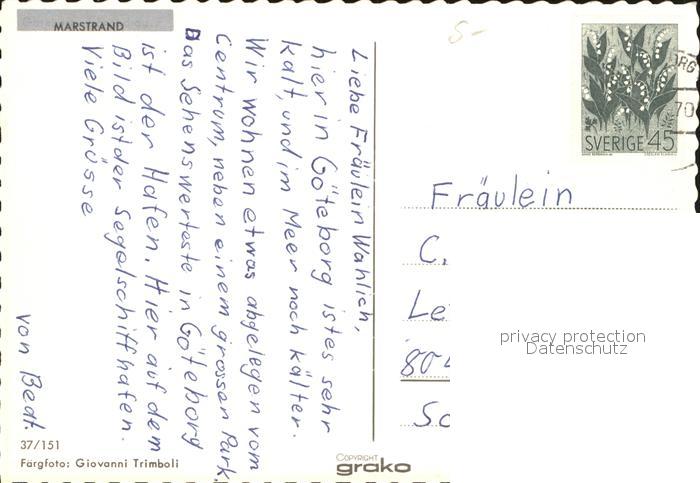 MARSTRAND
Liebe Fräulein Wahlich,
hier in Göteborg ist es sehr
kalt, und im Meer noch kälter.
Wir wohnen etwas abgelegen vom
Centrum, neben einem grossen Park.
Das Sehenswerteste in Göteborg
ist der Hafen. Hier auf dem
Bild ist der Segelschiffhafen.
Viele Grüsse
von Beat.
37/151
Färgfoto: Giovanni Trimboli
COPYRIGHT
grako
5-
SVERIGE 45
ORG
70
Fräulein
C.
Le
804
Sc
privacy protection
Datenschutz